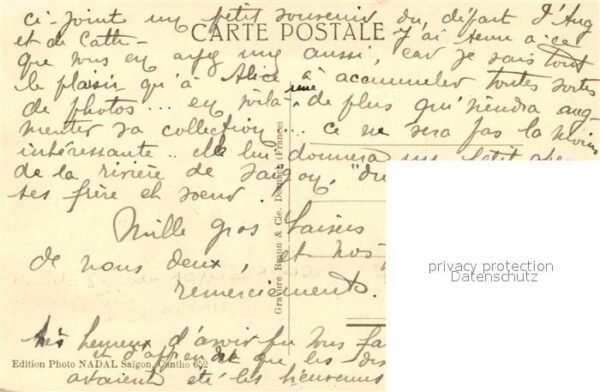 ci-joint un petit souvenir du départ d'Aug
CARTE POSTALE
et de Cath - J'ai tenu à ce
que vous en ayez un aussi, car je sais tout
le plaisir qu'a Alice à accumuler toutes sortes
de photos... en voilà une de plus qui viendra aug-
menter sa collection... ce ne sera pas la moins
intéressante.. elle lui donnera un petit
de la rivière de Saigon, "du
ses frère et soeur.
Mille gros baisers
de nous deux, et nos
remerciements.
Gravure Braun & Cie, Dornach (France)
privacy protection
Datenschutz
très heureux d'avoir pu vous
Edition Photo NADAL Saigon, Cantho 652
et d'apprendre que les
avaient été les bienvenus